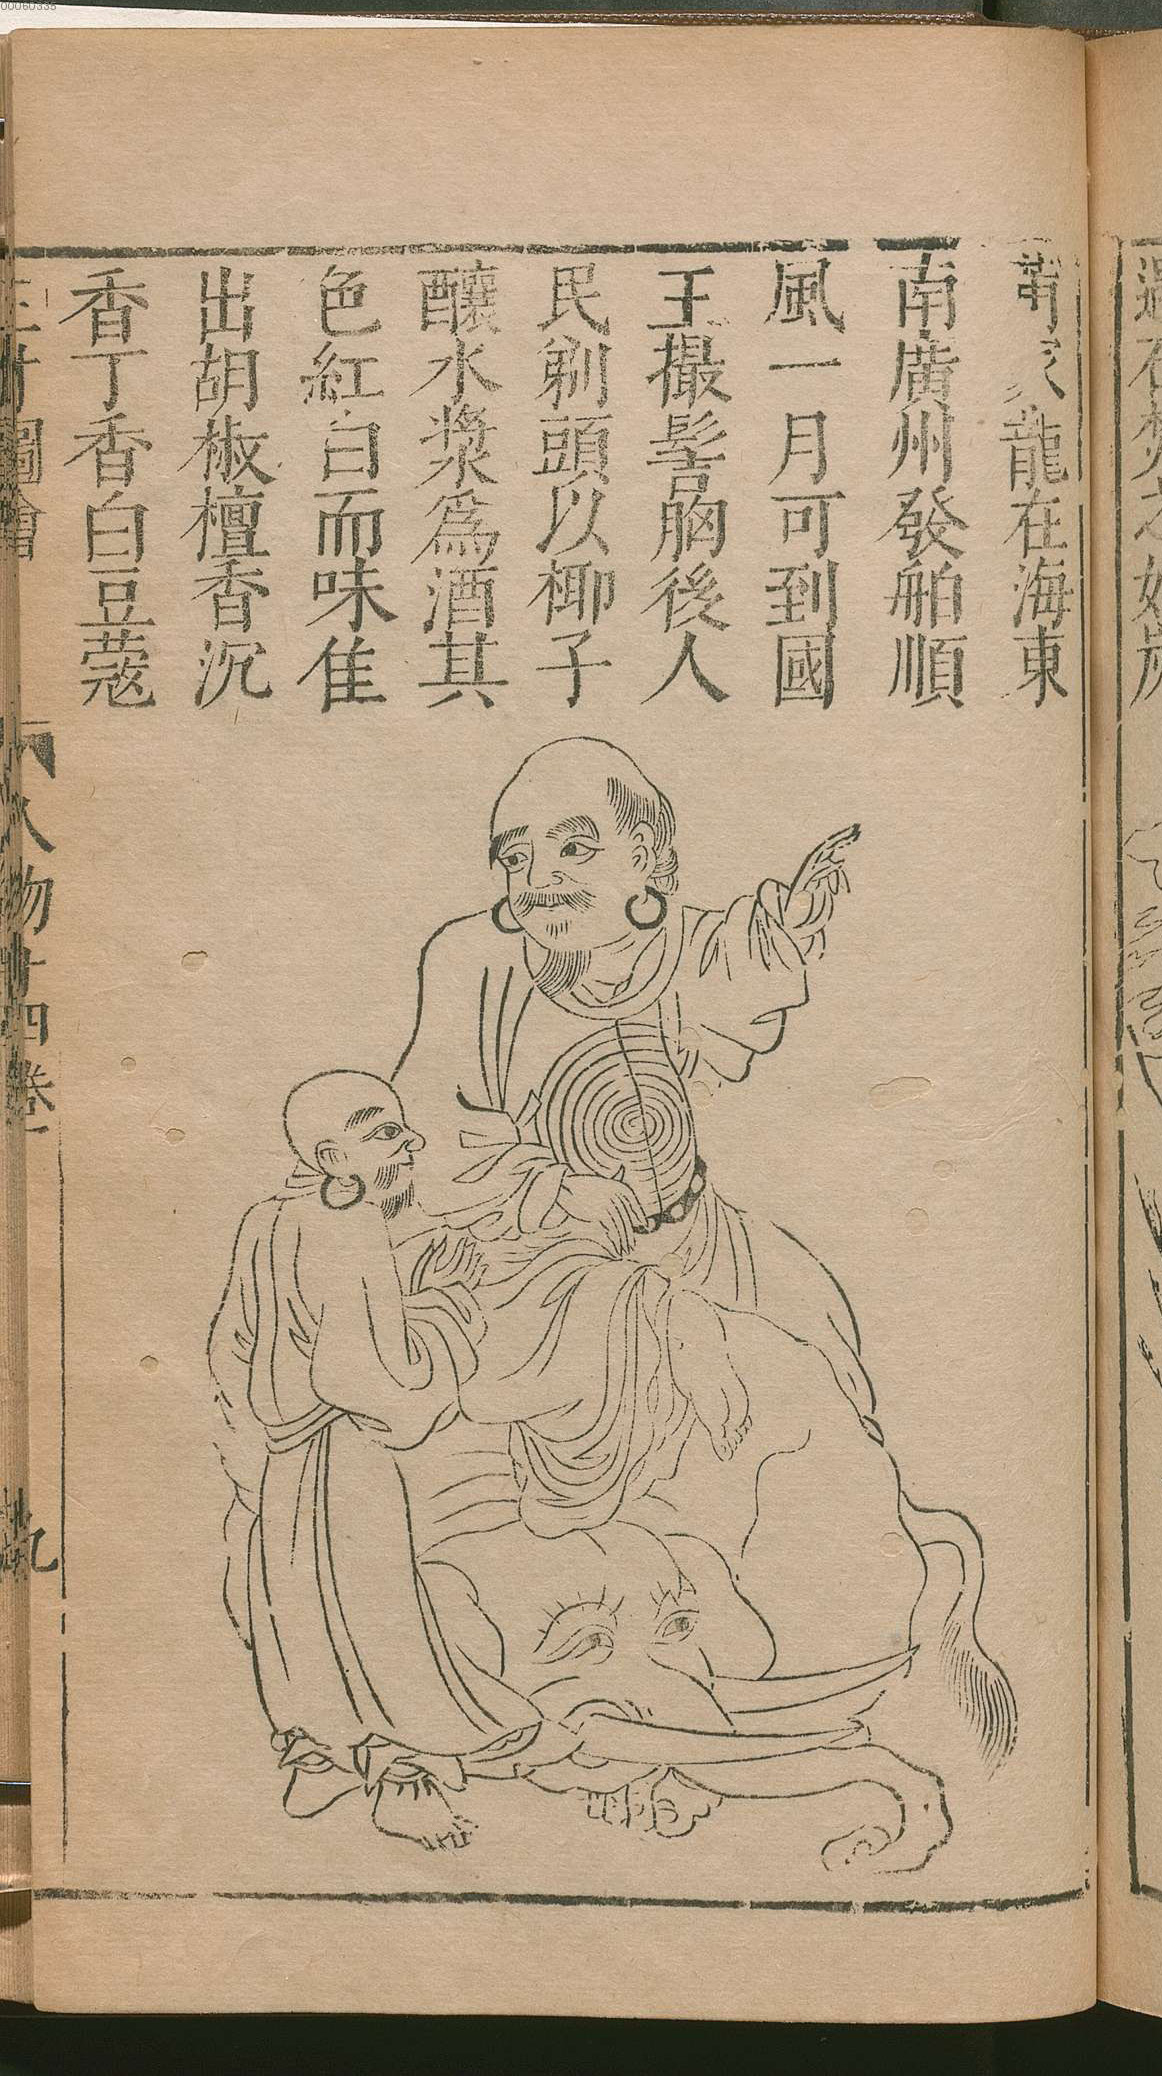 莆家龍在海東
南廣州發舶順
風一月可到國
王撮髻胸後人
民剃頭以椰子
釀水漿爲酒其
色紅白而味隹
出胡椒檀香沉
香丁香白豆蔻
圖會
人物十四卷
九
00060335